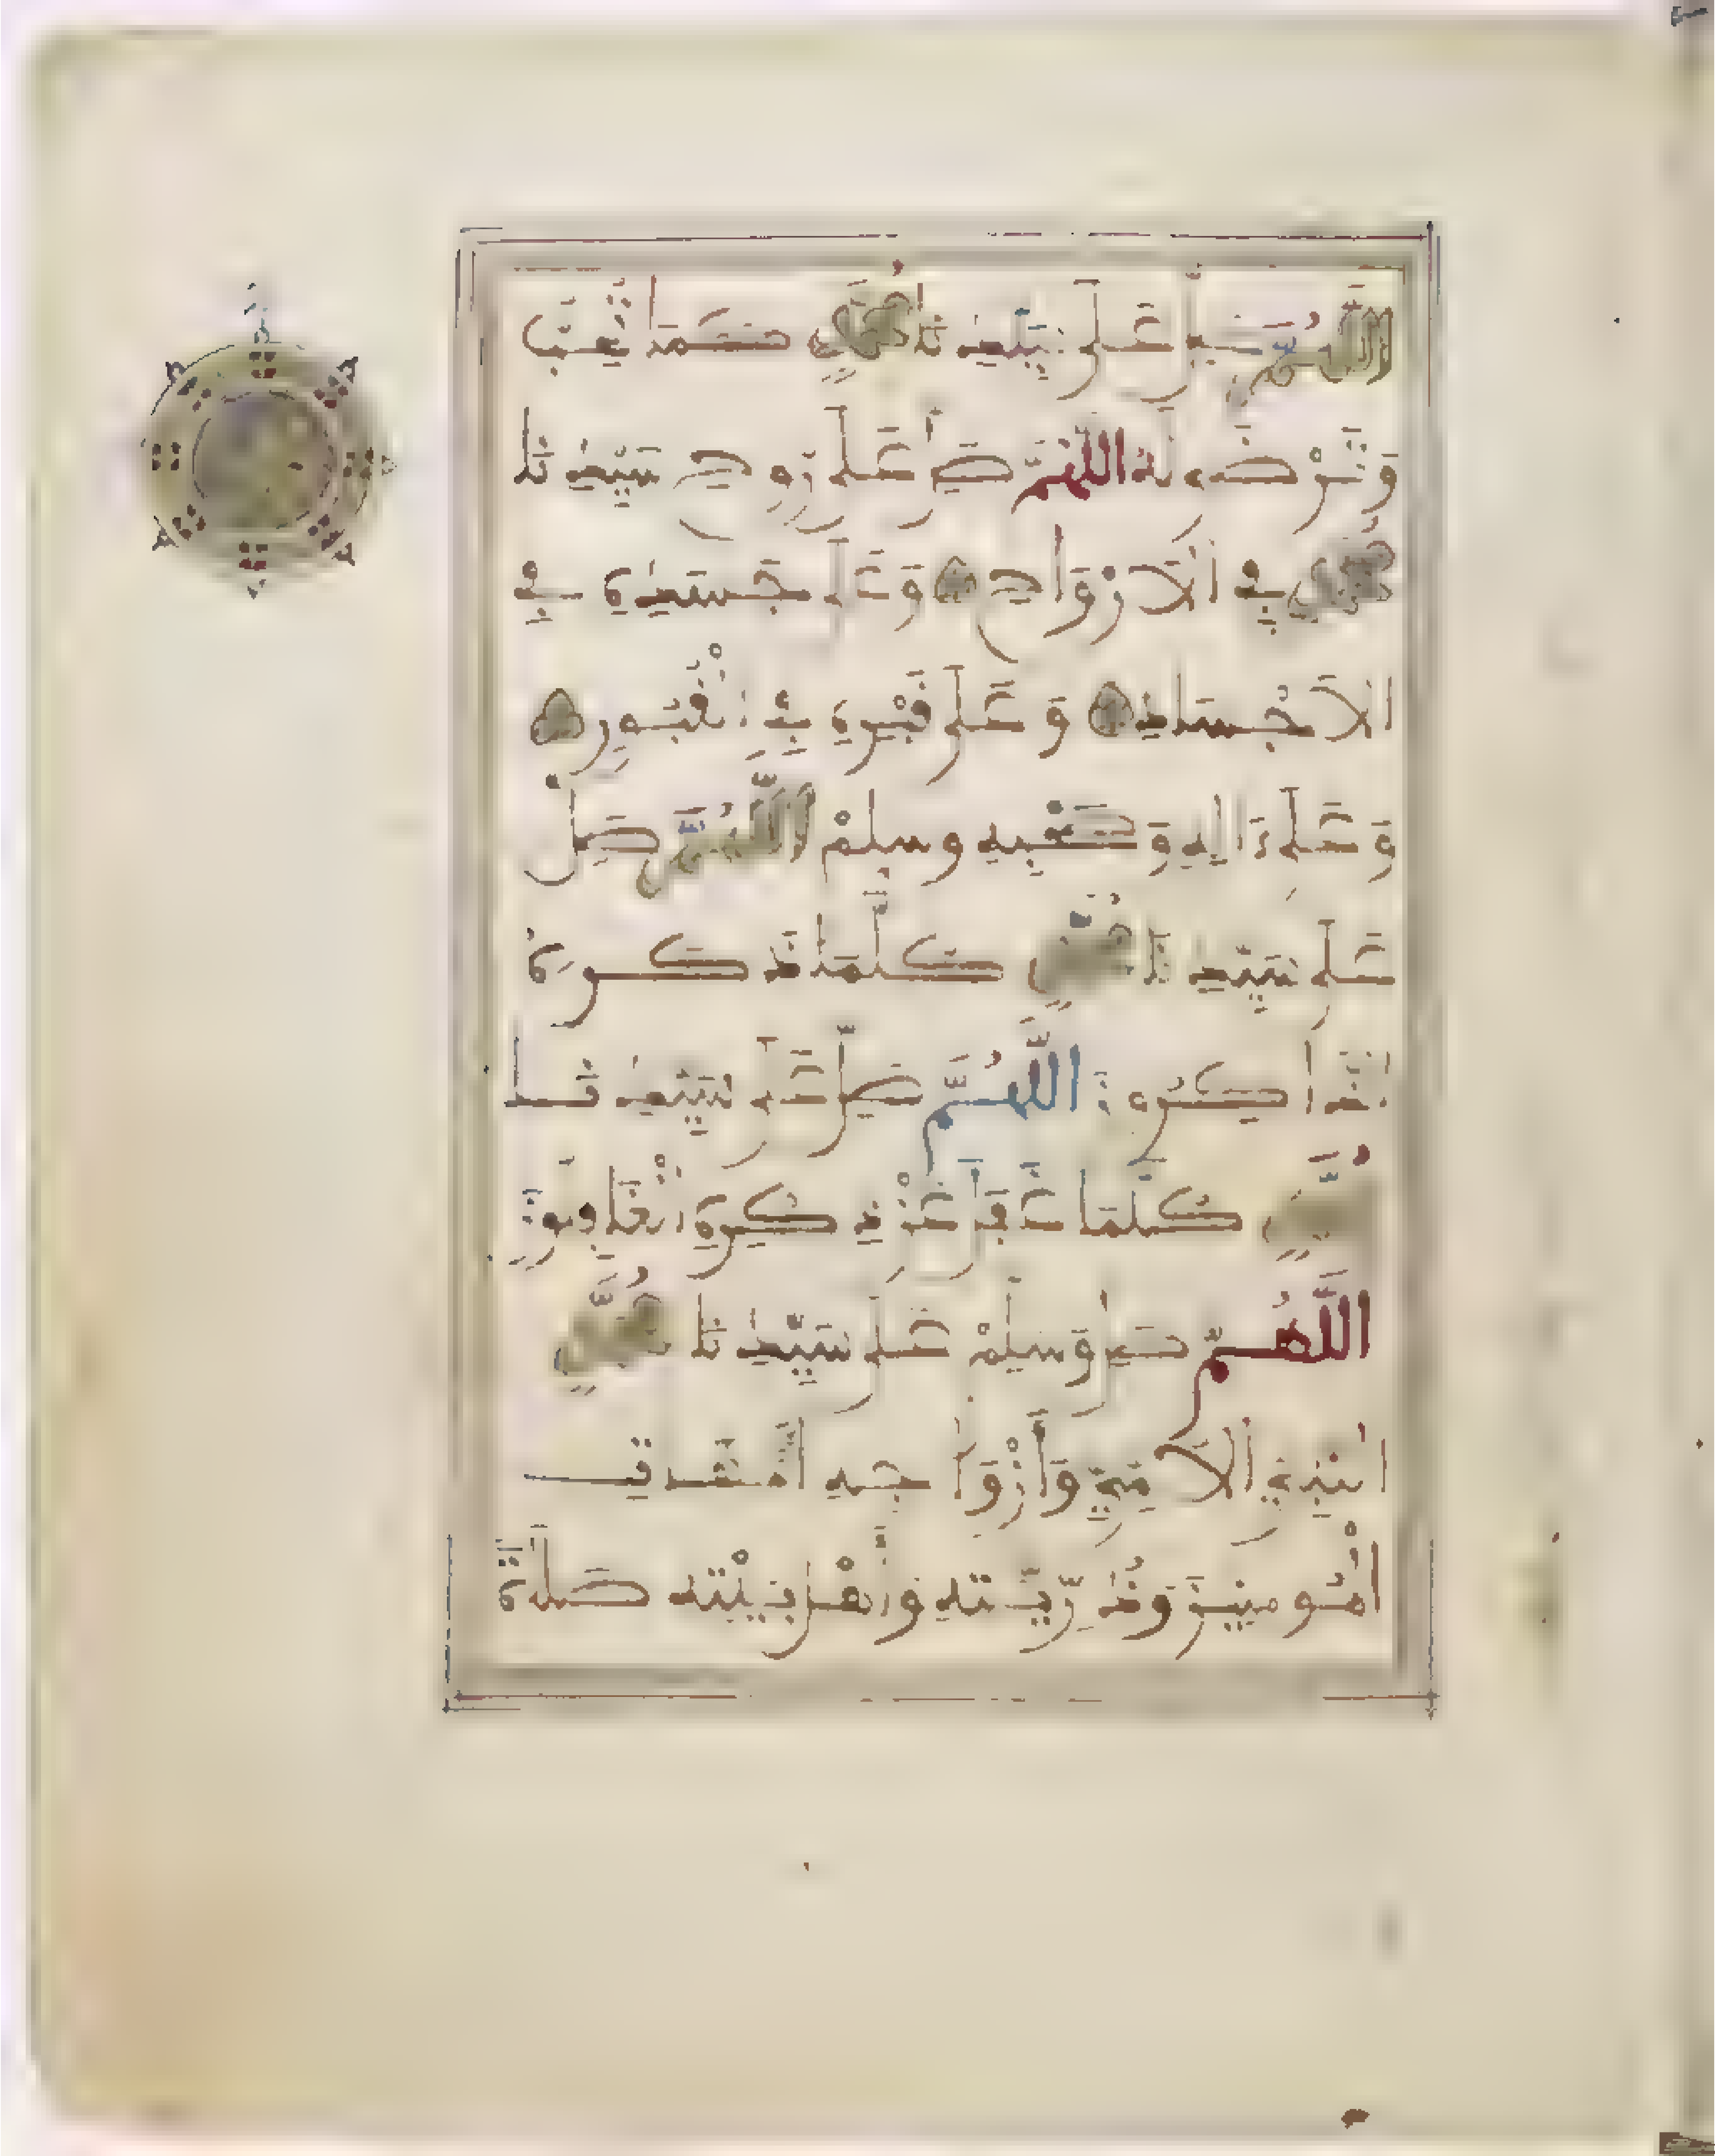 اللَّهُمَّ صَلِّ عَلَى سَيِّدِنَا مُحَمَّدٍ كَمَا تُحِبُّ
وَتَرْضَى لَهُ اللَّهُمَّ صَلِّ عَلَى رُوحِ سَيِّدِنَا
مُحَمَّدٍ فِي الْأَرْوَاحِ وَعَلَى جَسَدِهِ فِي
الْأَجْسَادِ وَعَلَى قَبْرِهِ فِي الْقُبُورِ
وَعَلَى ءَالِهِ وَصَحْبِهِ وَسَلِّمْ اللَّهُمَّ صَلِّ
عَلَى سَيِّدِنَا مُحَمَّدٍ كُلَّمَا ذَكَرَهُ
الذَّاكِرُونَ اللَّهُمَّ صَلِّ عَلَى سَيِّدِنَا
مُحَمَّدٍ كُلَّمَا غَفَلَ عَنْ ذِكْرِهِ الْغَافِلُونَ
اللَّهُمَّ صَلِّ وَسَلِّمْ عَلَى سَيِّدِنَا مُحَمَّدٍ
النَّبِيِّ الْأُمِّيِّ وَأَزْوَاجِهِ أُمَّهَاتِ
الْمُومِنِينَ وَذُرِّيَّتِهِ وَأَهْلِ بَيْتِهِ صَلَاةً